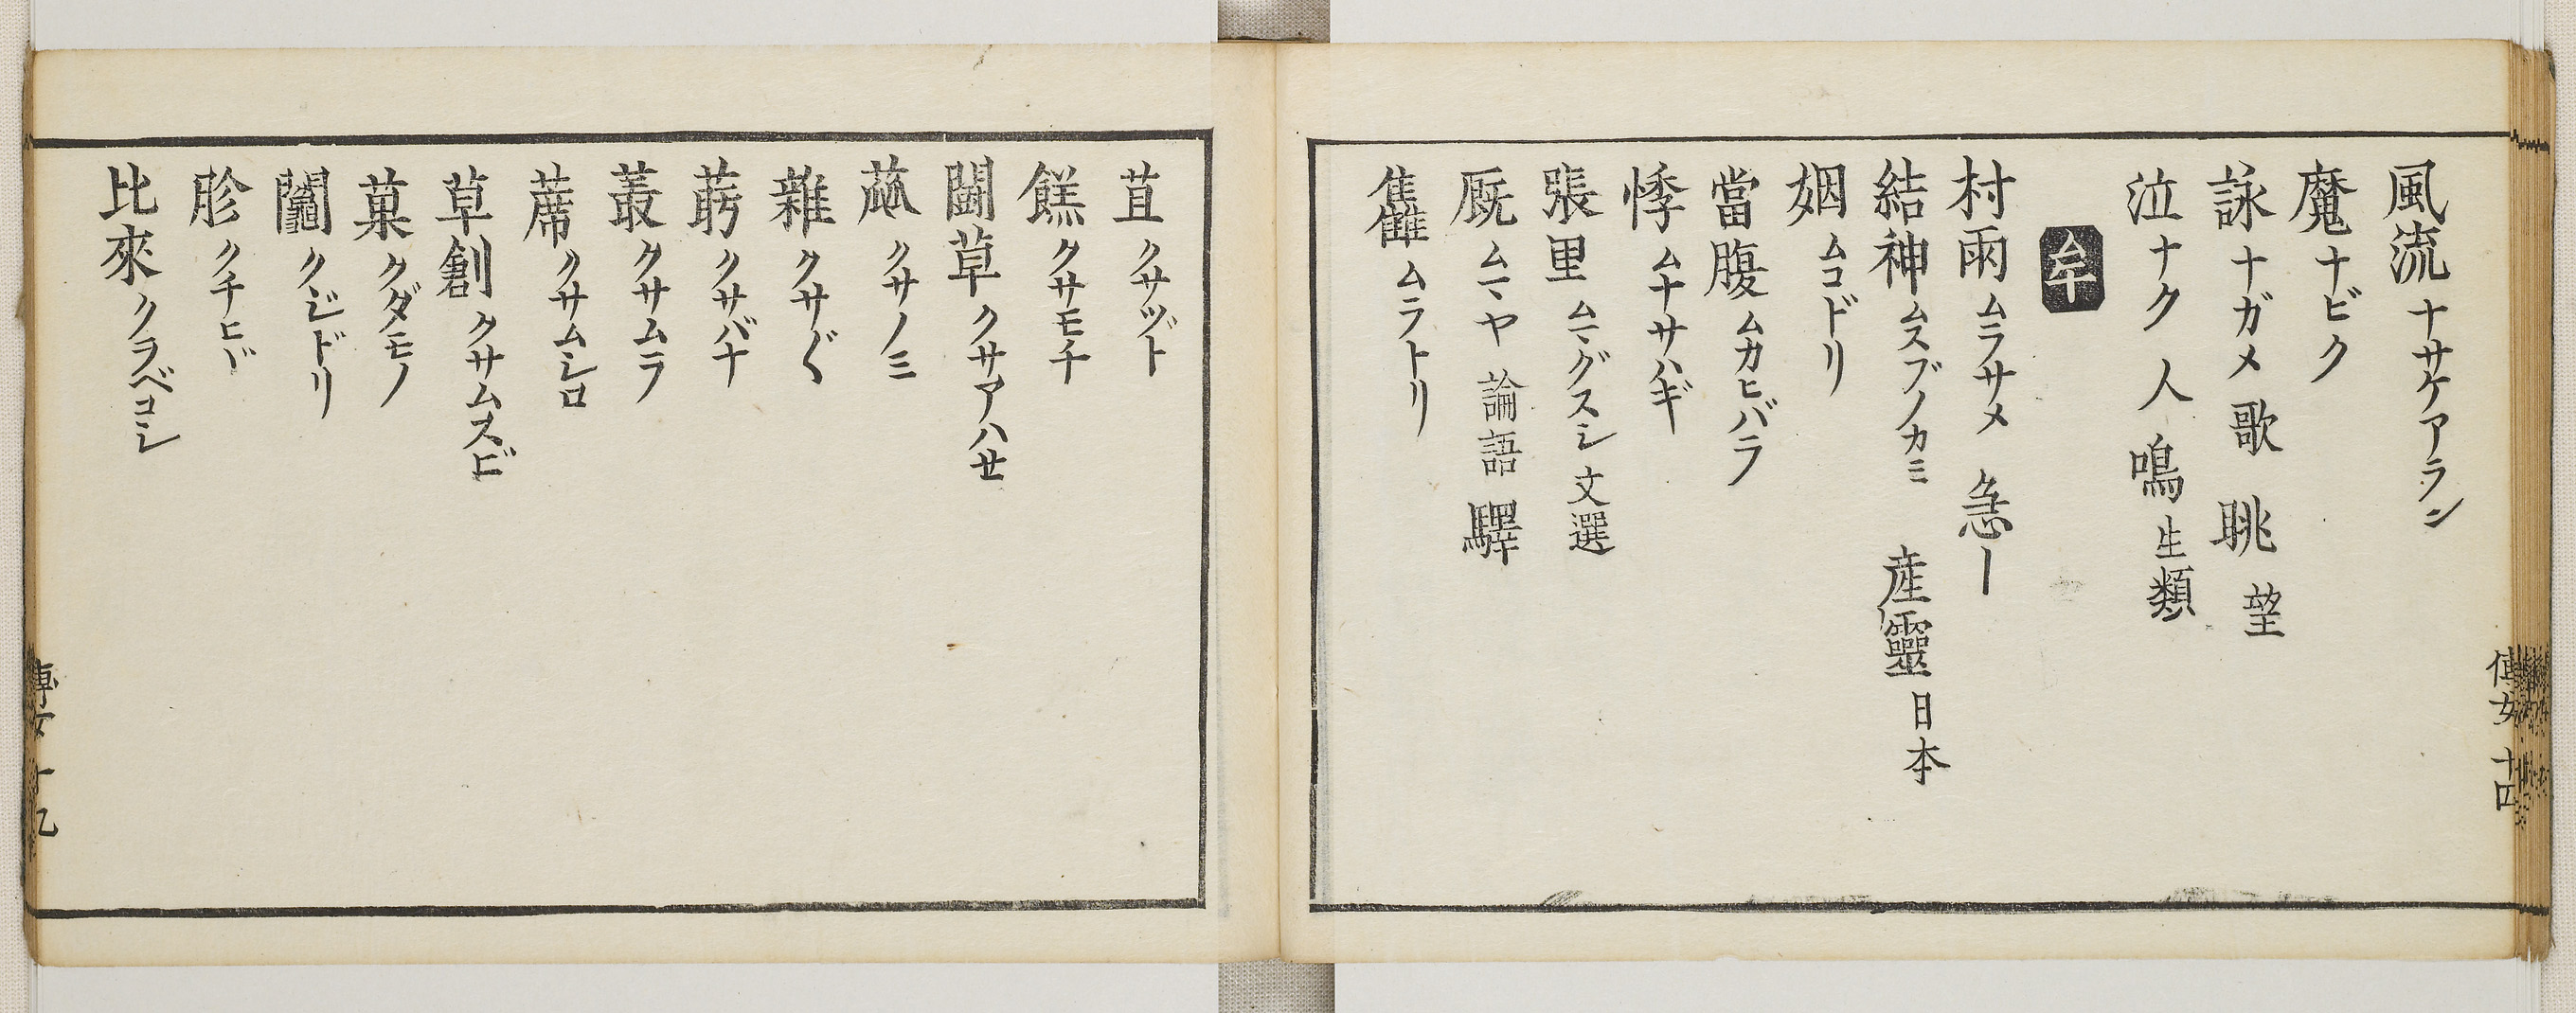 風流 ナサケアラン
魔 ナビク
詠 ナガメ 歌 眺 望
泣 ナク 人 鳴 生類
牟
村雨 ムラサメ 急ー
結神 ムスブノカミ 産靈 日本
姻 ムコドリ
當腹 ムカヒバラ
悸 ムナサハギ
張里 ムマグスシ 文選
厩 ムマヤ 論語 驛
雋 ムラトリ
傳女 十四
苴 クサヅト
餻 クサモチ
鬪草 クサアハせ
蓏 クサノミ
雜 クサ〴〵
蕚 クサバナ
叢 クサムラ
蓆 クサムシロ
草創 クサムスビ
菓 クダモノ
鬮 クジドリ
胗 クチヒヾ
比來 クラベコシ